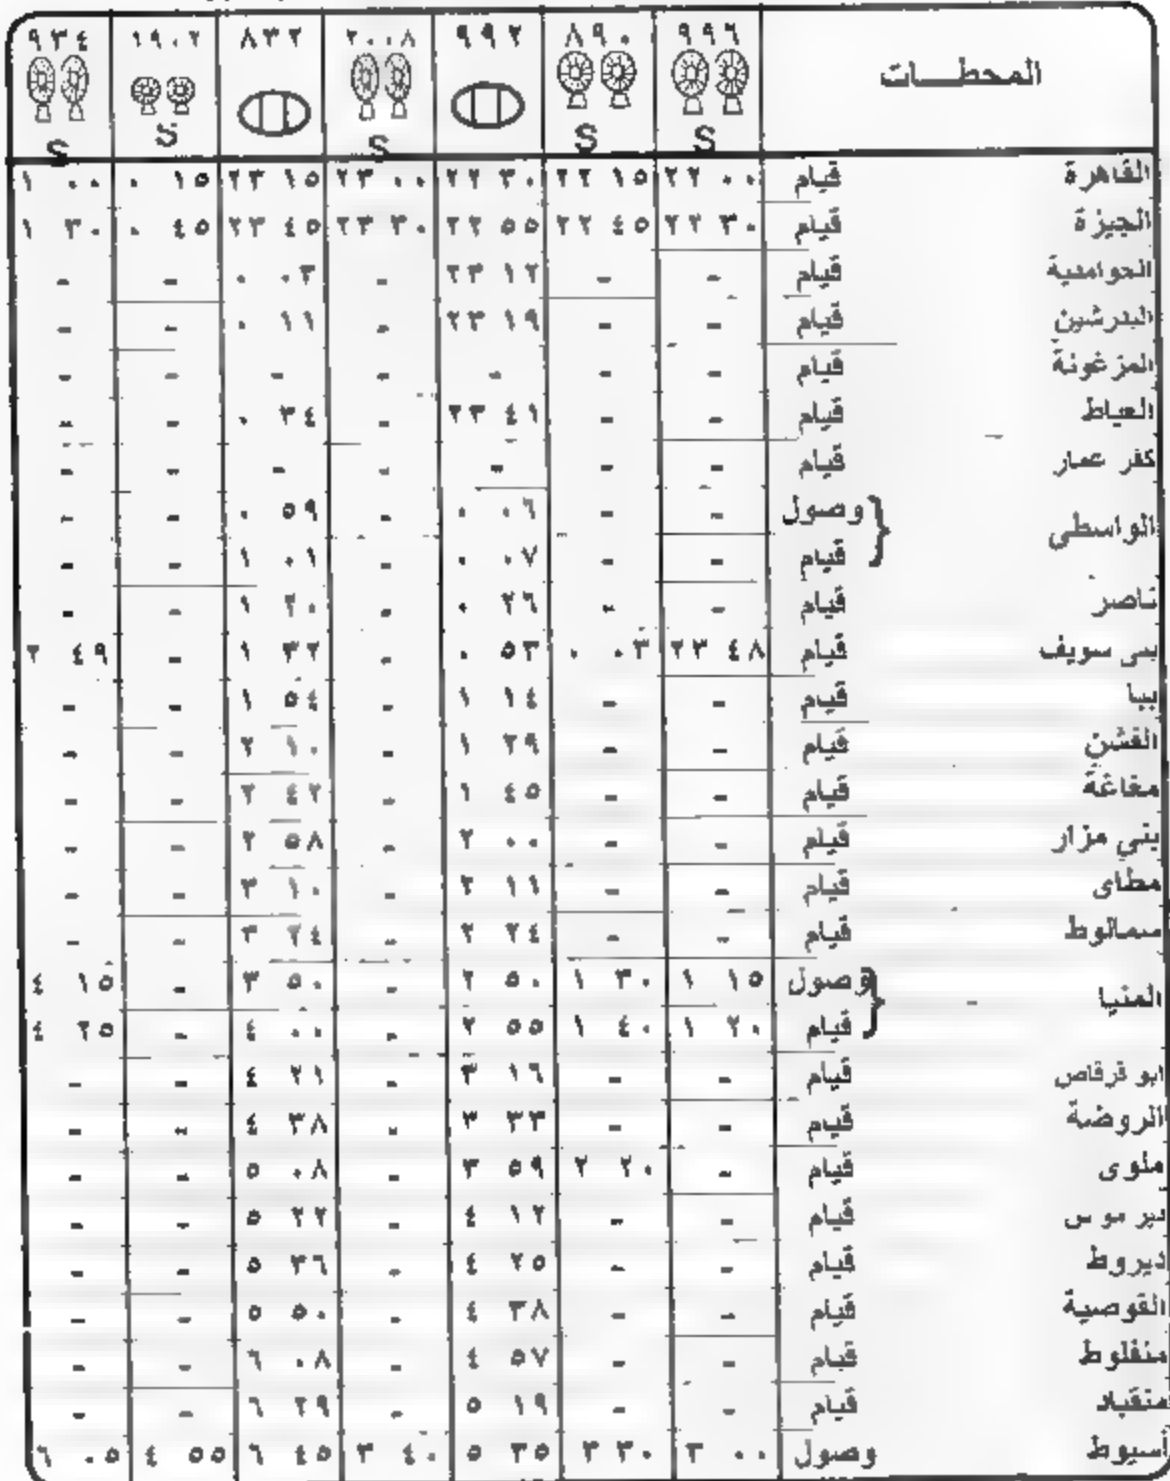 المحطـــات ٩٩٦ ٨٩٠ ٩٩٢ ٢٠٠٨ ٨٣٢ ١٩٠٢ ٩٣٤
S S S S S
القاهرة قيام ٢٢ ٠٠ ٢٢ ١٥ ٢٢ ٣٠ ٢٣ ٠٠ ٢٣ ١٥ ٠ ١٥ ١ ٠٠
الجيزة قيام ٢٢ ٣٠ ٢٢ ٤٥ ٢٢ ٥٥ ٢٣ ٣٠ ٢٣ ٤٥ ٠ ٤٥ ١ ٣٠
الحوامدية قيام - - ٢٣ ١٢ - ٠ ٠٣ - -
البدرشين قيام - - ٢٣ ١٩ - ٠ ١١ - -
المزغونة قيام - - - - - - -
العياط قيام - - ٢٣ ٤١ - ٠ ٣٤ - -
كفر عمار قيام - - - - - - -
الواسطى وصول - - ٠ ٠٦ - ٠ ٥٩ - -
قيام - - ٠ ٠٧ - ١ ٠١ - -
ناصر قيام - - ٠ ٢٦ - ١ ٢٠ - -
بنى سويف قيام ٢٣ ٤٨ ٠ ٠٣ ٠ ٥٣ - ١ ٣٢ - ٢ ٤٩
ببا قيام - - ١ ١٤ - ١ ٥٤ - -
الفشن قيام - - ١ ٢٩ - ٢ ١٠ - -
مغاغة قيام - - ١ ٤٥ - ٢ ٤٢ - -
بني مزار قيام - - ٢ ٠٠ - ٢ ٥٨ - -
مطاى قيام - - ٢ ١١ - ٣ ١٠ - -
سمالوط قيام - - ٢ ٢٤ - ٣ ٢٤ - -
المنيا وصول ١ ١٥ ١ ٣٠ ٢ ٥٠ - ٣ ٥٠ - ٤ ١٥
قيام ١ ٢٠ ١ ٤٠ ٢ ٥٥ - ٤ ٠٠ - ٤ ٢٥
ابو قرقاص قيام - - ٣ ١٦ - ٤ ٢١ - -
الروضة قيام - - ٣ ٣٣ - ٤ ٣٨ - -
ملوى قيام - ٢ ٢٠ ٣ ٥٩ - ٥ ٠٨ - -
دير مو س قيام - - ٤ ١٢ - ٥ ٢٢ - -
ديروط قيام - - ٤ ٢٥ - ٥ ٣٦ - -
القوصية قيام - - ٤ ٣٨ - ٥ ٥٠ - -
منفلوط قيام - - ٤ ٥٧ - ٦ ٠٨ - -
منقباد قيام - - ٥ ١٩ - ٦ ٢٩ - -
أسيوط وصول ٣ ٠٠ ٣ ٣٠ ٥ ٣٥ ٣ ٤٠ ٦ ٤٥ ٤ ٥٥ ٦ ٠٥